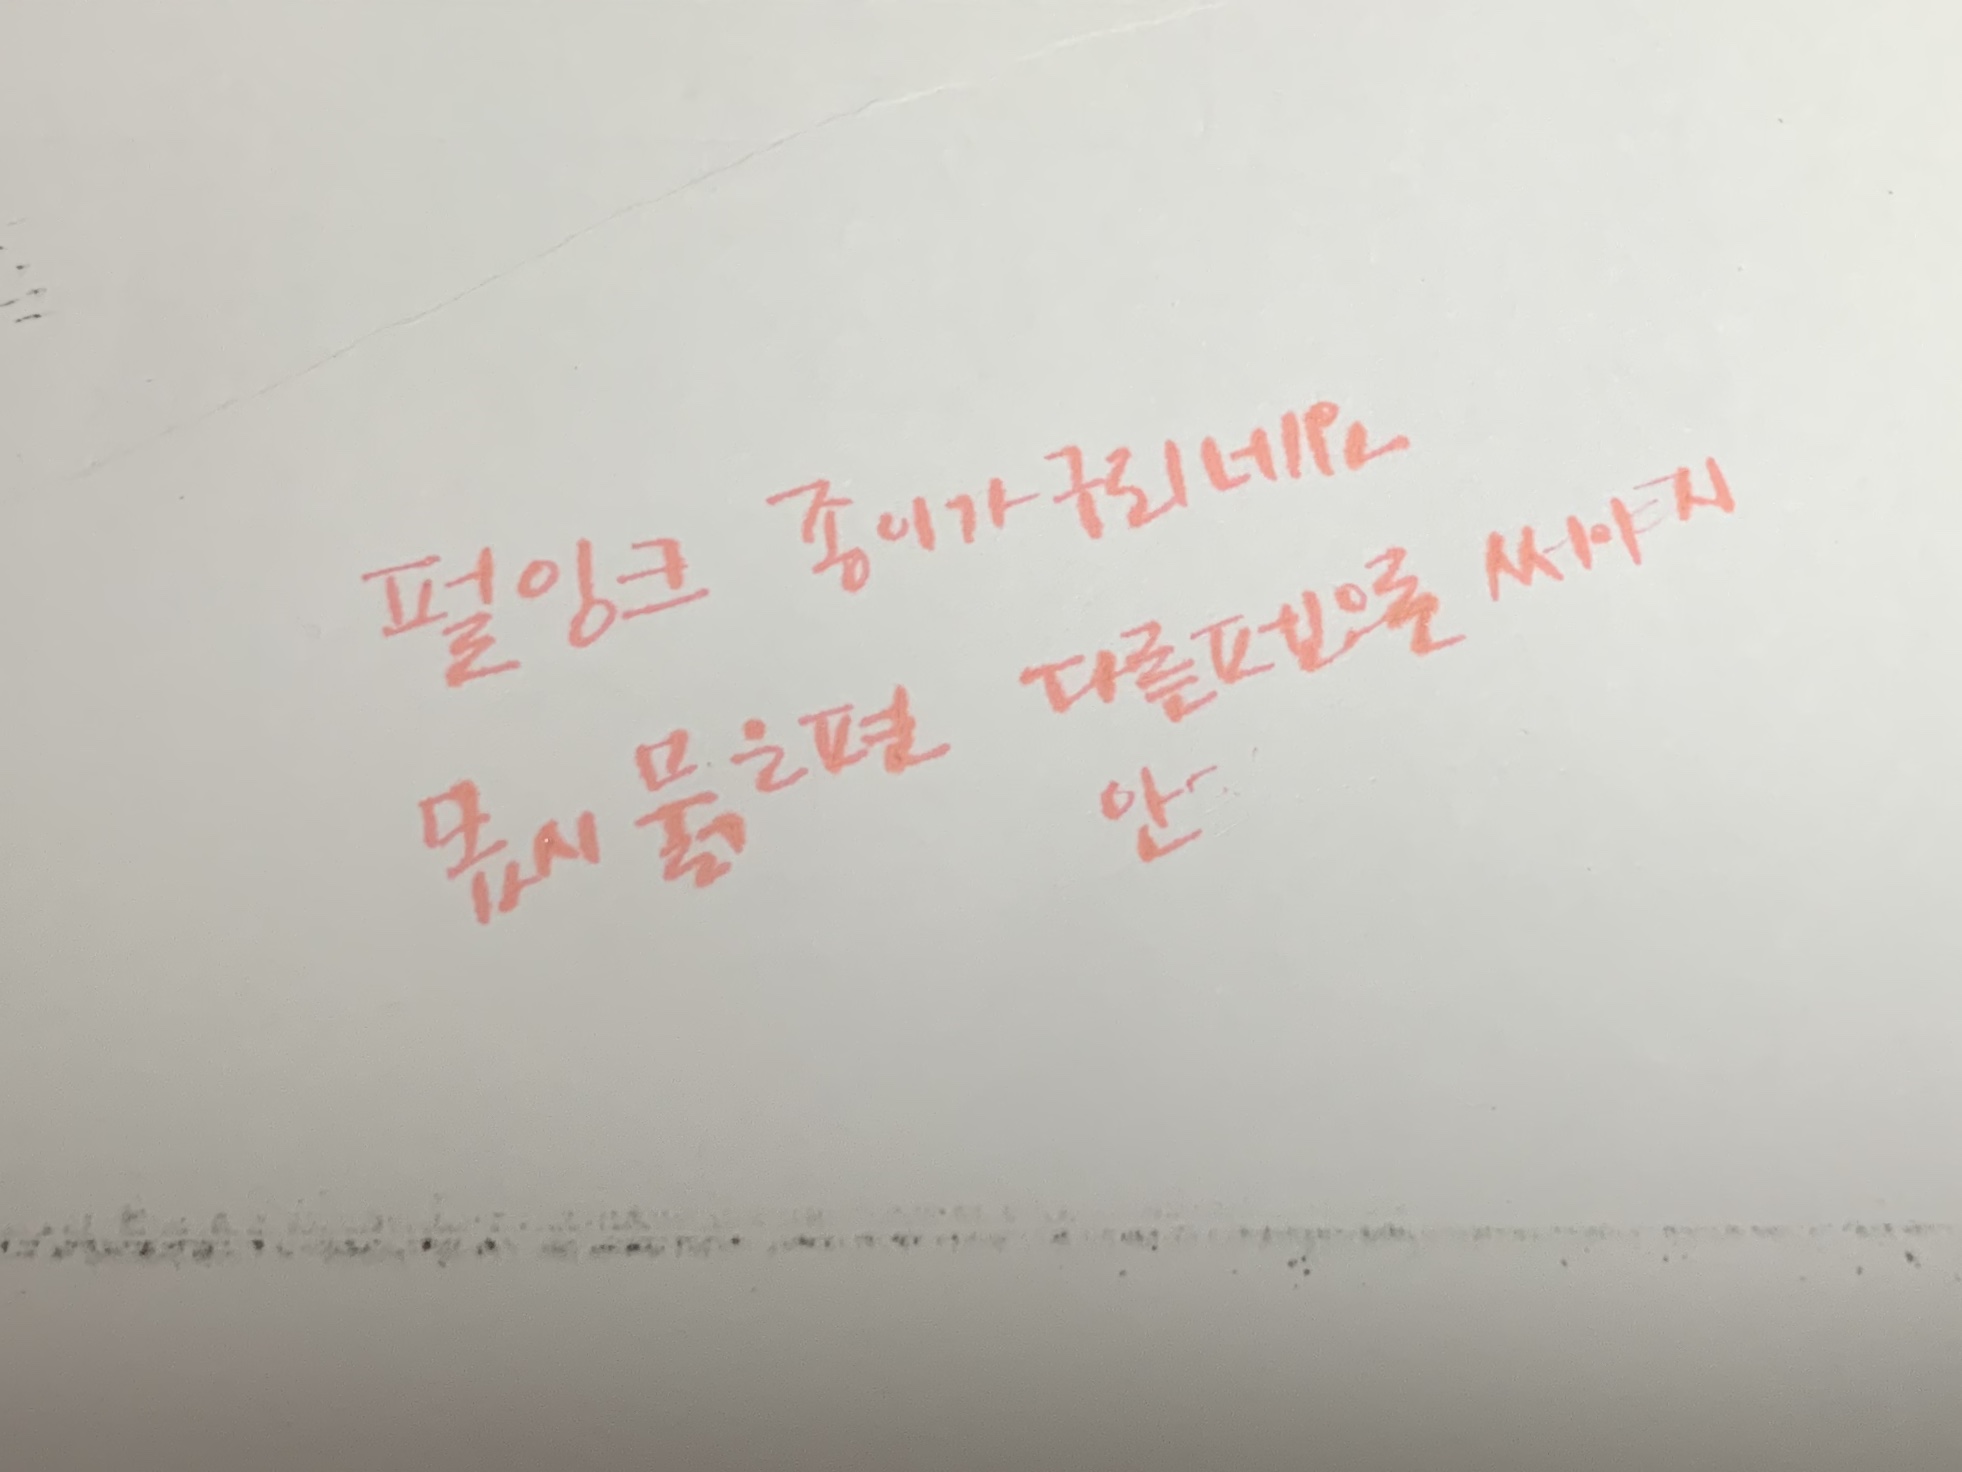 펄잉크 종이가 구리네요
몹시 묽은편 다른펜으로 써야지
안